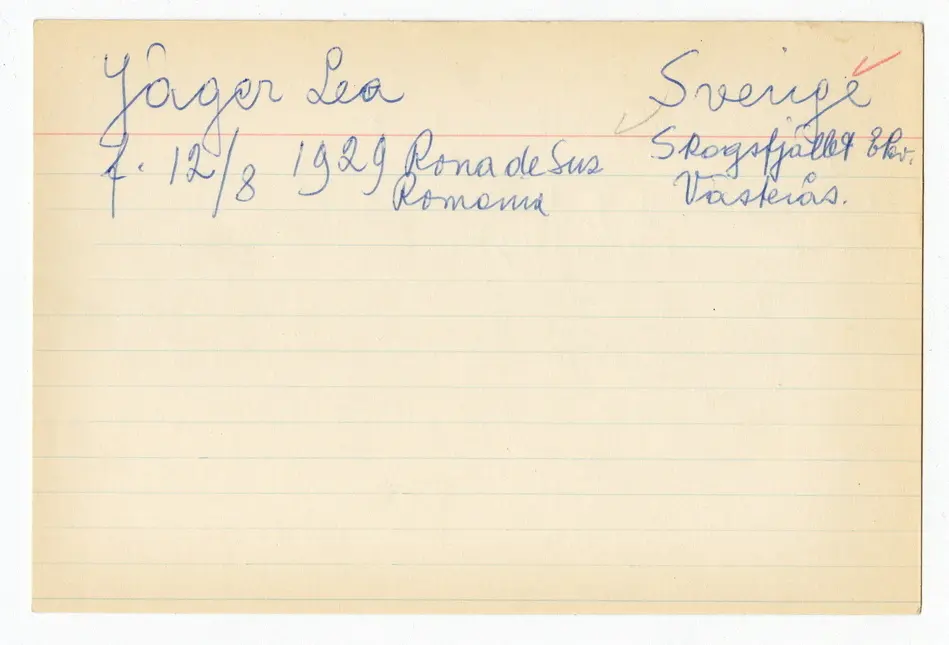 Jäger Lea
Sverige
f. 12/8 1929 Rona de Sus
Romania
Skogsfjället
Västerås.